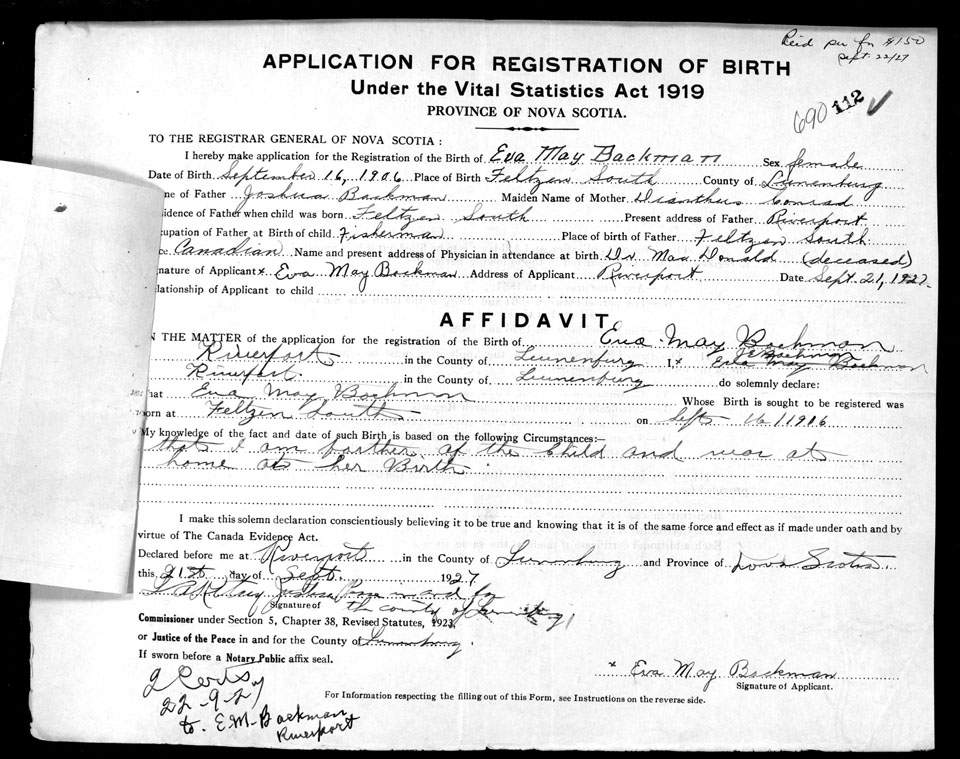 Reid per fn $1.50
Sept. 22/27
APPLICATION FOR REGISTRATION OF BIRTH
Under the Vital Statistics Act 1919
PROVINCE OF NOVA SCOTIA.
690 112 ✓
TO THE REGISTRAR GENERAL OF NOVA SCOTIA :
I hereby make application for the Registration of the Birth of Eva May Backman Sex female
Date of Birth September 16, 1906 Place of Birth Feltzen South County of Lunenburg
me of Father Joshua Backman Maiden Name of Mother Dianthus Conrad
sidence of Father when child was born Feltzen South Present address of Father Riverport
cupation of Father at Birth of child Fisherman Place of birth of Father Feltzen South
ce Canadian Name and present address of Physician in attendance at birth Dr. Mac Donald (deceased)
gnature of Applicant x Eva May Backman Address of Applicant Riverport Date Sept. 21, 1927
elationship of Applicant to child
AFFIDAVIT
N THE MATTER of the application for the registration of the Birth of Eva May Backman
Riverport in the County of Lunenburg I, x Eva May Backman
J E Backman
Riverport in the County of Lunenburg do solemnly declare:
hat Eva May Backman Whose Birth is sought to be registered was
born at Feltzen South on Sept 16 1906
My knowledge of the fact and date of such Birth is based on the following Circumstances:—
that I am farther of the child and was at
home at her Birth
I make this solemn declaration conscientiously believing it to be true and knowing that it is of the same force and effect as if made under oath and by
virtue of The Canada Evidence Act.
Declared before me at Riverport in the County of Lunenburg and Province of Nova Scotia
this 21st day of Sept. 1927
in and for
Signature of the county of Lunenburg
Commissioner under Section 5, Chapter 38, Revised Statutes, 1923,
or Justice of the Peace in and for the County of Lunenburg.
If sworn before a Notary Public affix seal.
x Eva May Backman
Signature of Applicant.
2 Certs
22-9-27
to E.M. Backman
Riverport
For Information respecting the filling out of this Form, see Instructions on the reverse side.